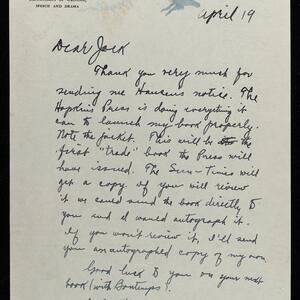 SPEECH AND DRAMA
April 19
Dear Jack
Thank you very much for
sending me Hansen's notice. The
Hopkins Press is doing everything it
can to launch my book properly.
Note the jacket. This will be the
first "trade" book the Press will
have issued. The Sun-Times will
get a copy. If you will review
it we could send the book directly to
you and I would autograph it.
If you won't review it, I'll send
you an autographed copy of my own
Good luck to you on your next
book (with Bontemps)!